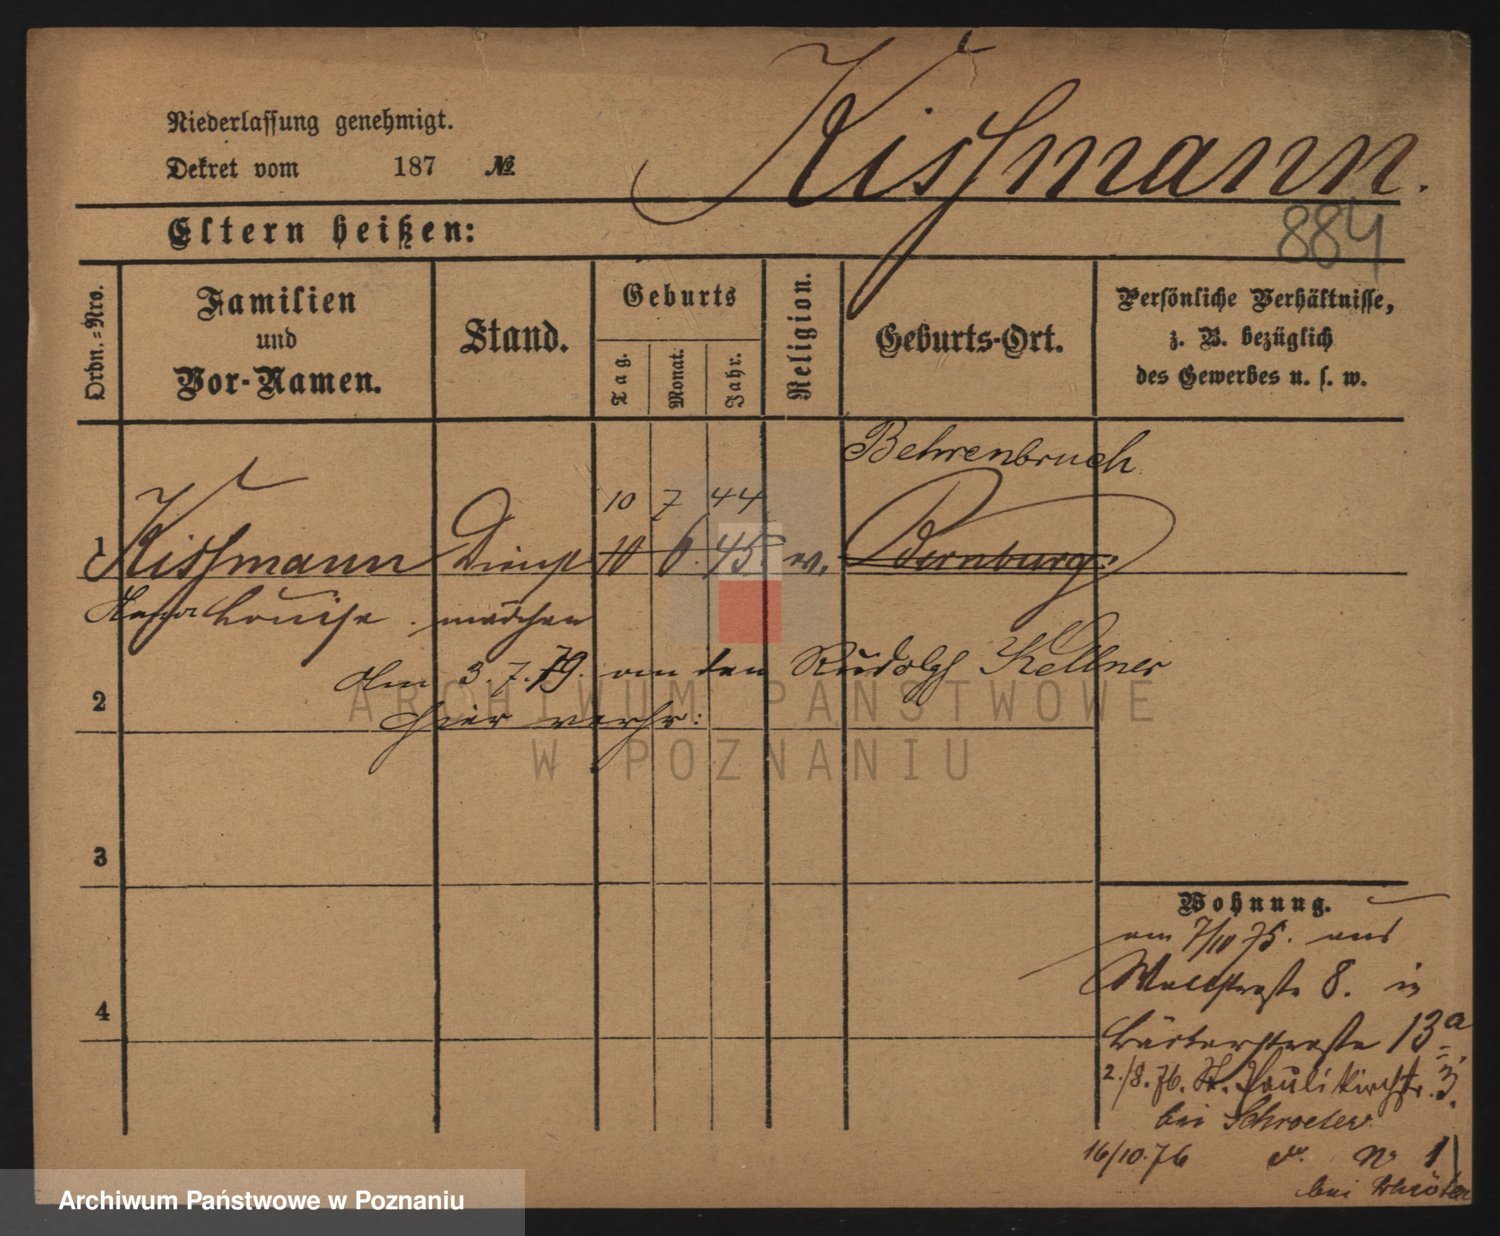 Kissmann.
Niederlassung genehmigt.
Dekret vom 187 №
884
Eltern heißen:
Ordn.-Nro.
Familien
und
Vor-Namen.
Stand.
Geburts
Tag.
Monat.
Jahr.
Religion.
Geburts-Ort.
Persönliche Verhältnisse,
z. B. bezüglich
des Gewerbes u. s. w.
Behrenbruch
10 7 44
1 Kissmann Dienst 10 6. 45. ev. Bernburg.
Louise. mädchen
am 3.7.79. an den Rudolph Kellner
2 hier verh:
3
4
Wohnung.
am 7/10 75. aus
Wallstraße 8. in
Bäckerstraße 13a
2./8.76. St. Paulikirchstr. 3.
bei Schroeter
16/10.76 do. No 1
bei Schröter
ARCHIWUM PAŃSTWOWE
W POZNANIU
Archiwum Państwowe w Poznaniu